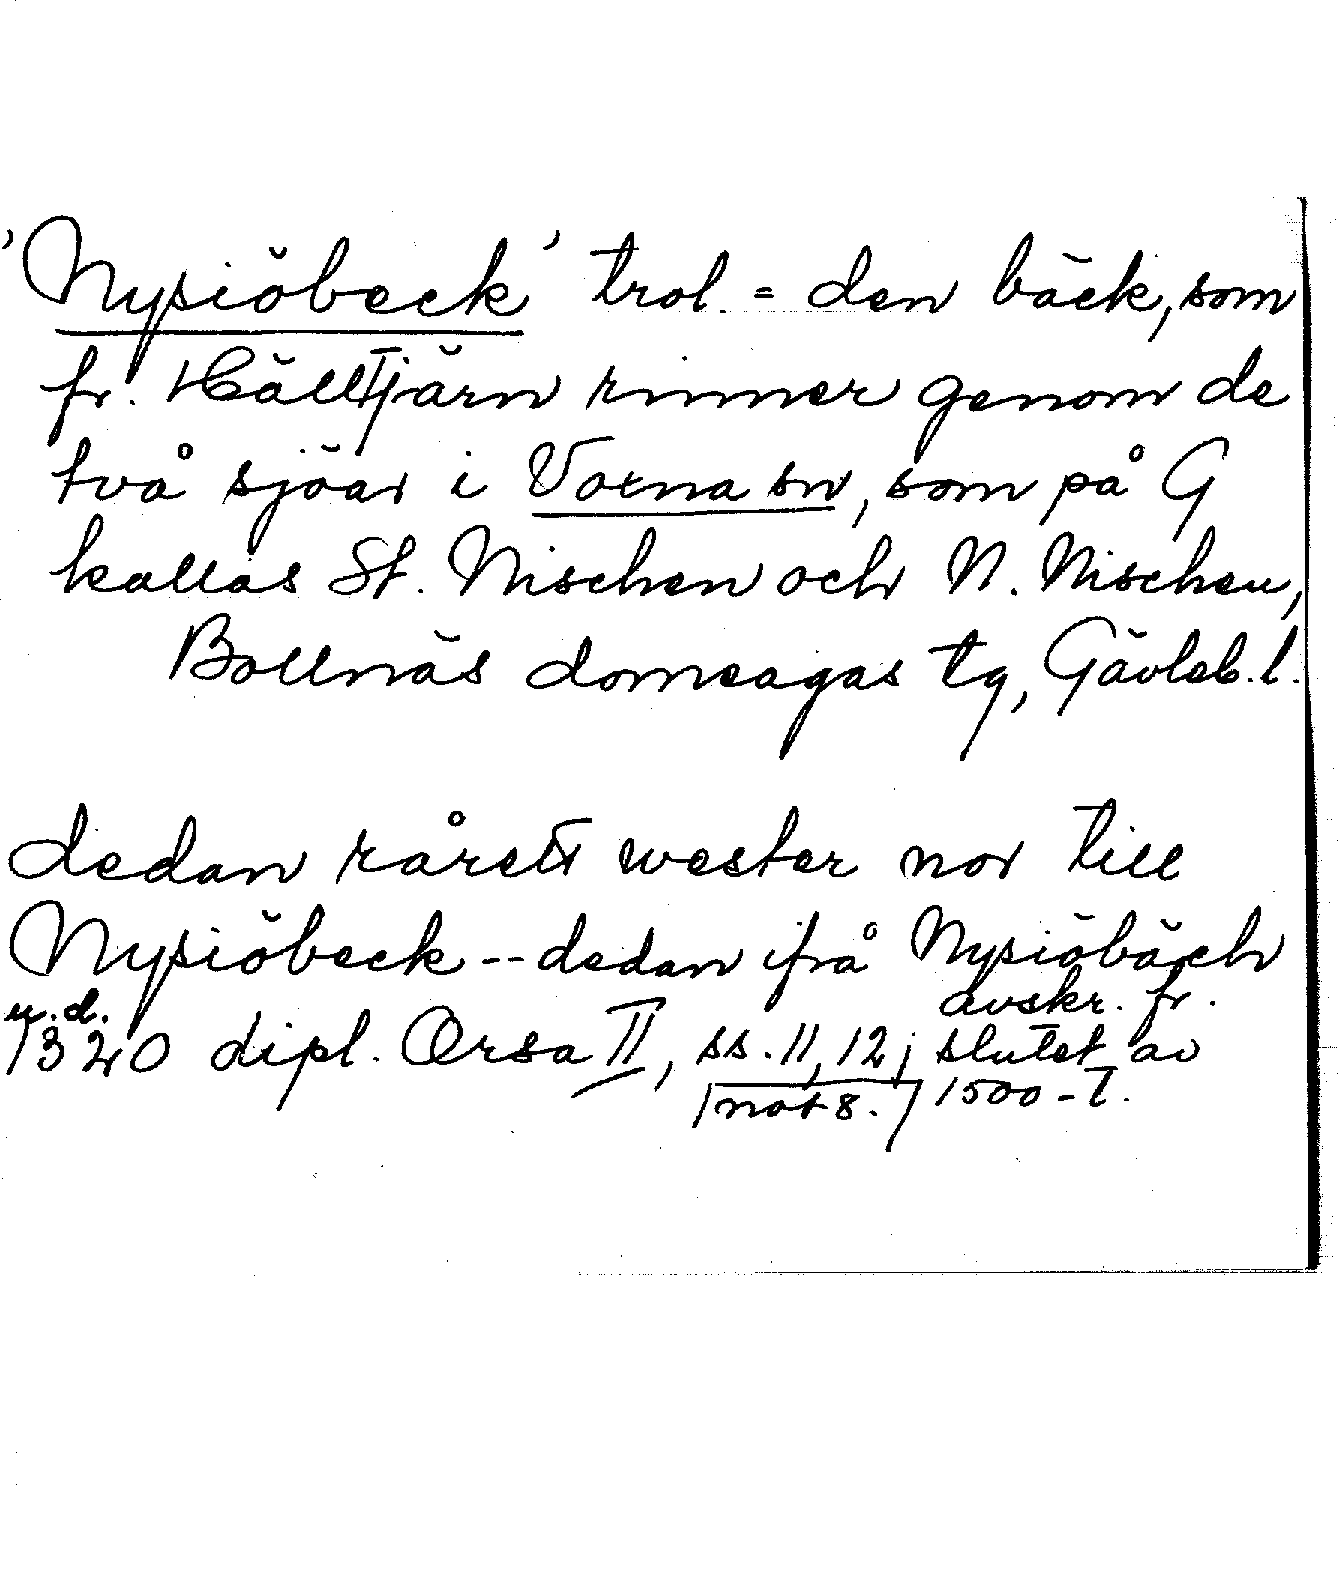 'Nysiöbeck' trol. = den bäck, som
fr. Hälltjärn rinner genom de
två sjöar i Voxna sn, som på G
kallas St. Nischen och N. Nischen,
Bollnäs domsagas tg, Gävleb. l.
dedan rårett wester nor till
Nysiöbeck -- dedan ifrå Nysiöbäch
u. d. 1320 dipl. Orsa II, ss. 11, 12; avskr. fr. slutet av
/not 8./ 1500-t.